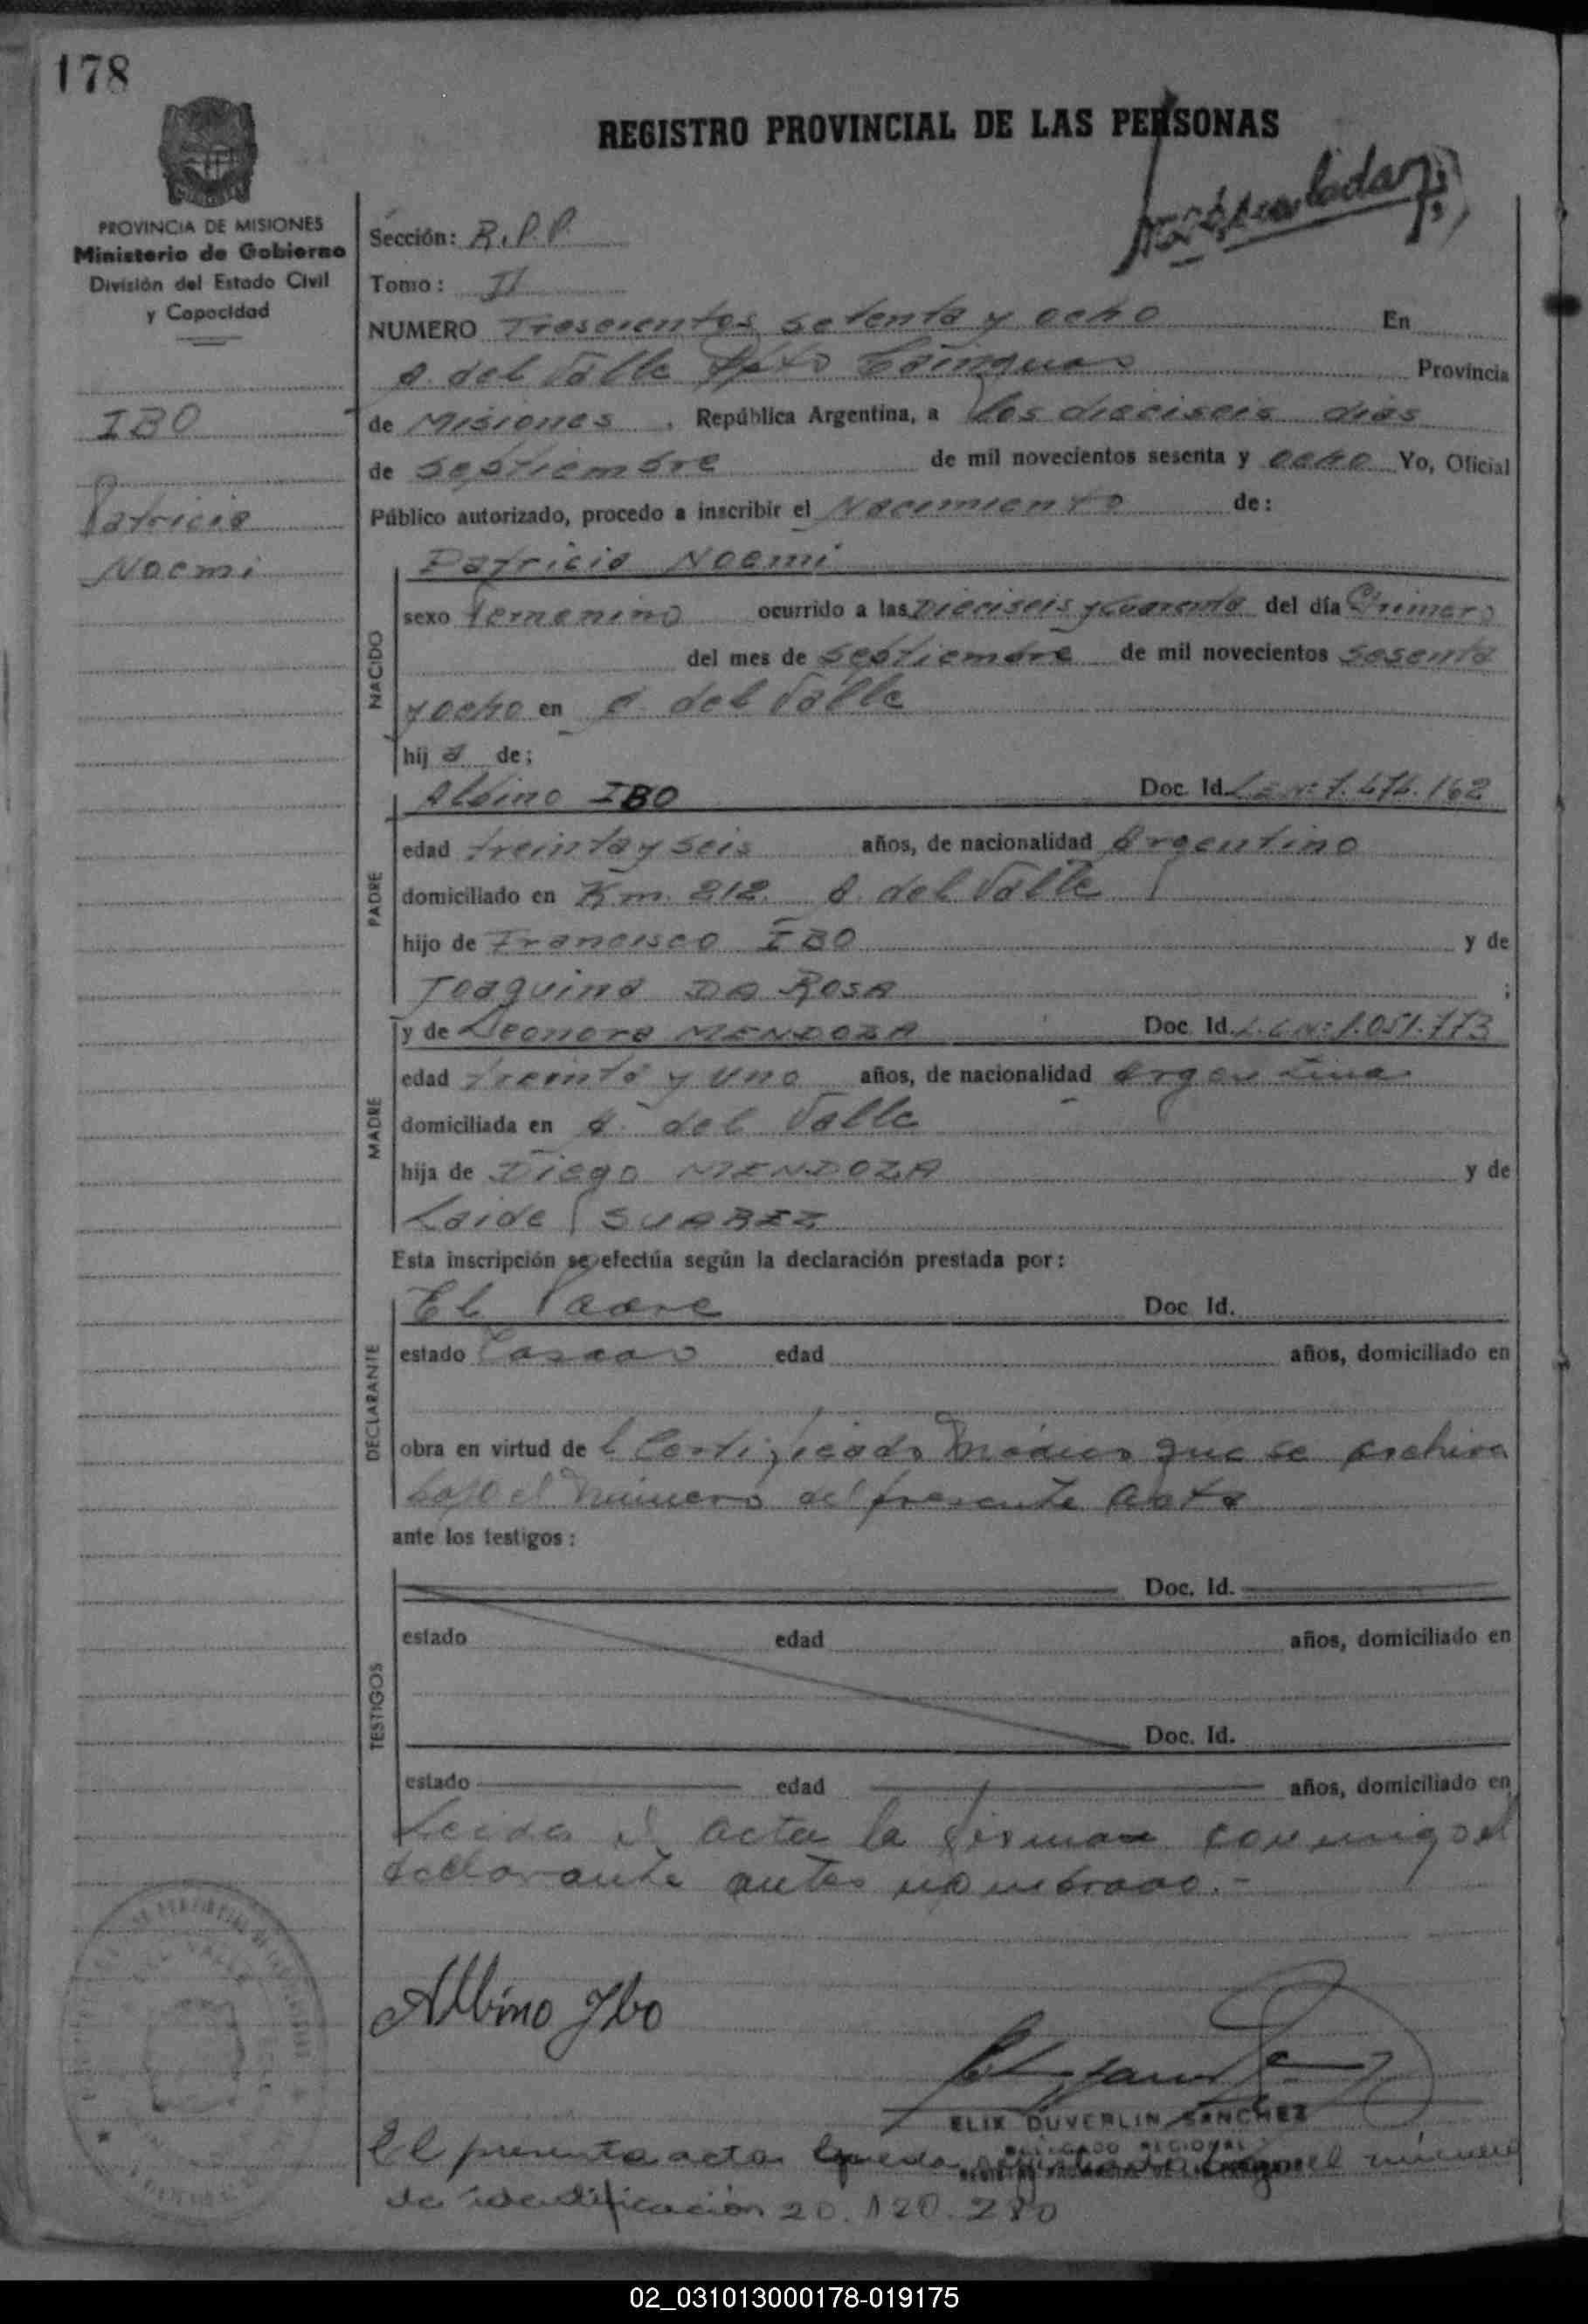 178
REGISTRO PROVINCIAL DE LAS PERSONAS
PROVINCIA DE MISIONES
Ministerio de Gobierno
División del Estado Civil
y Capacidad
IBO
Patricia
Noemi
Sección: R.P.P.
Tomo: II
NUMERO Trescientos setenta y ocho En
A. del Valle Dpto Cainguas Provincia
de Misiones, República Argentina, a los dieciseis dias
de septiembre de mil novecientos sesenta y ocho Yo, Oficial
Público autorizado, procedo a inscribir el Nacimiento de:
NACIDO
Patricia Noemi
sexo femenino ocurrido a las Dieciseis y cuarenta del día Primero
del mes de septiembre de mil novecientos sesenta
y ocho en A. del Valle
hij a de;
PADRE
Albino IBO Doc. Id. L.E.Nº 7.474.162
edad treinta y seis años, de nacionalidad Argentino
domiciliado en Km. 212. A. del Valle
hijo de Francisco IBO y de
Joaquina DA ROSA ;
MADRE
y de Leonora MENDOZA Doc. Id. L.C.Nº 1.051.773
edad treinta y uno años, de nacionalidad Argentina
domiciliada en A. del Valle
hija de Diego MENDOZA y de
Laide SUAREZ
Esta inscripción se efectúa según la declaración prestada por:
DECLARANTE
El Padre Doc. Id.
estado Casado edad años, domiciliado en
obra en virtud de l Certificado Médico que se archiva
bajo el número del presente Acta
ante los testigos:
TESTIGOS
Doc. Id.
estado edad años, domiciliado en
Doc. Id.
estado edad años, domiciliado en
Leida el acta la firman conmigo el
declarante antes nombrado.-
Albino Ibo
ELIX DUVERLIN SANCHEZ
DELEGADO REGIONAL
El presente acta queda bajo el número
de identificación 20.120.280
02_031013000178-019175